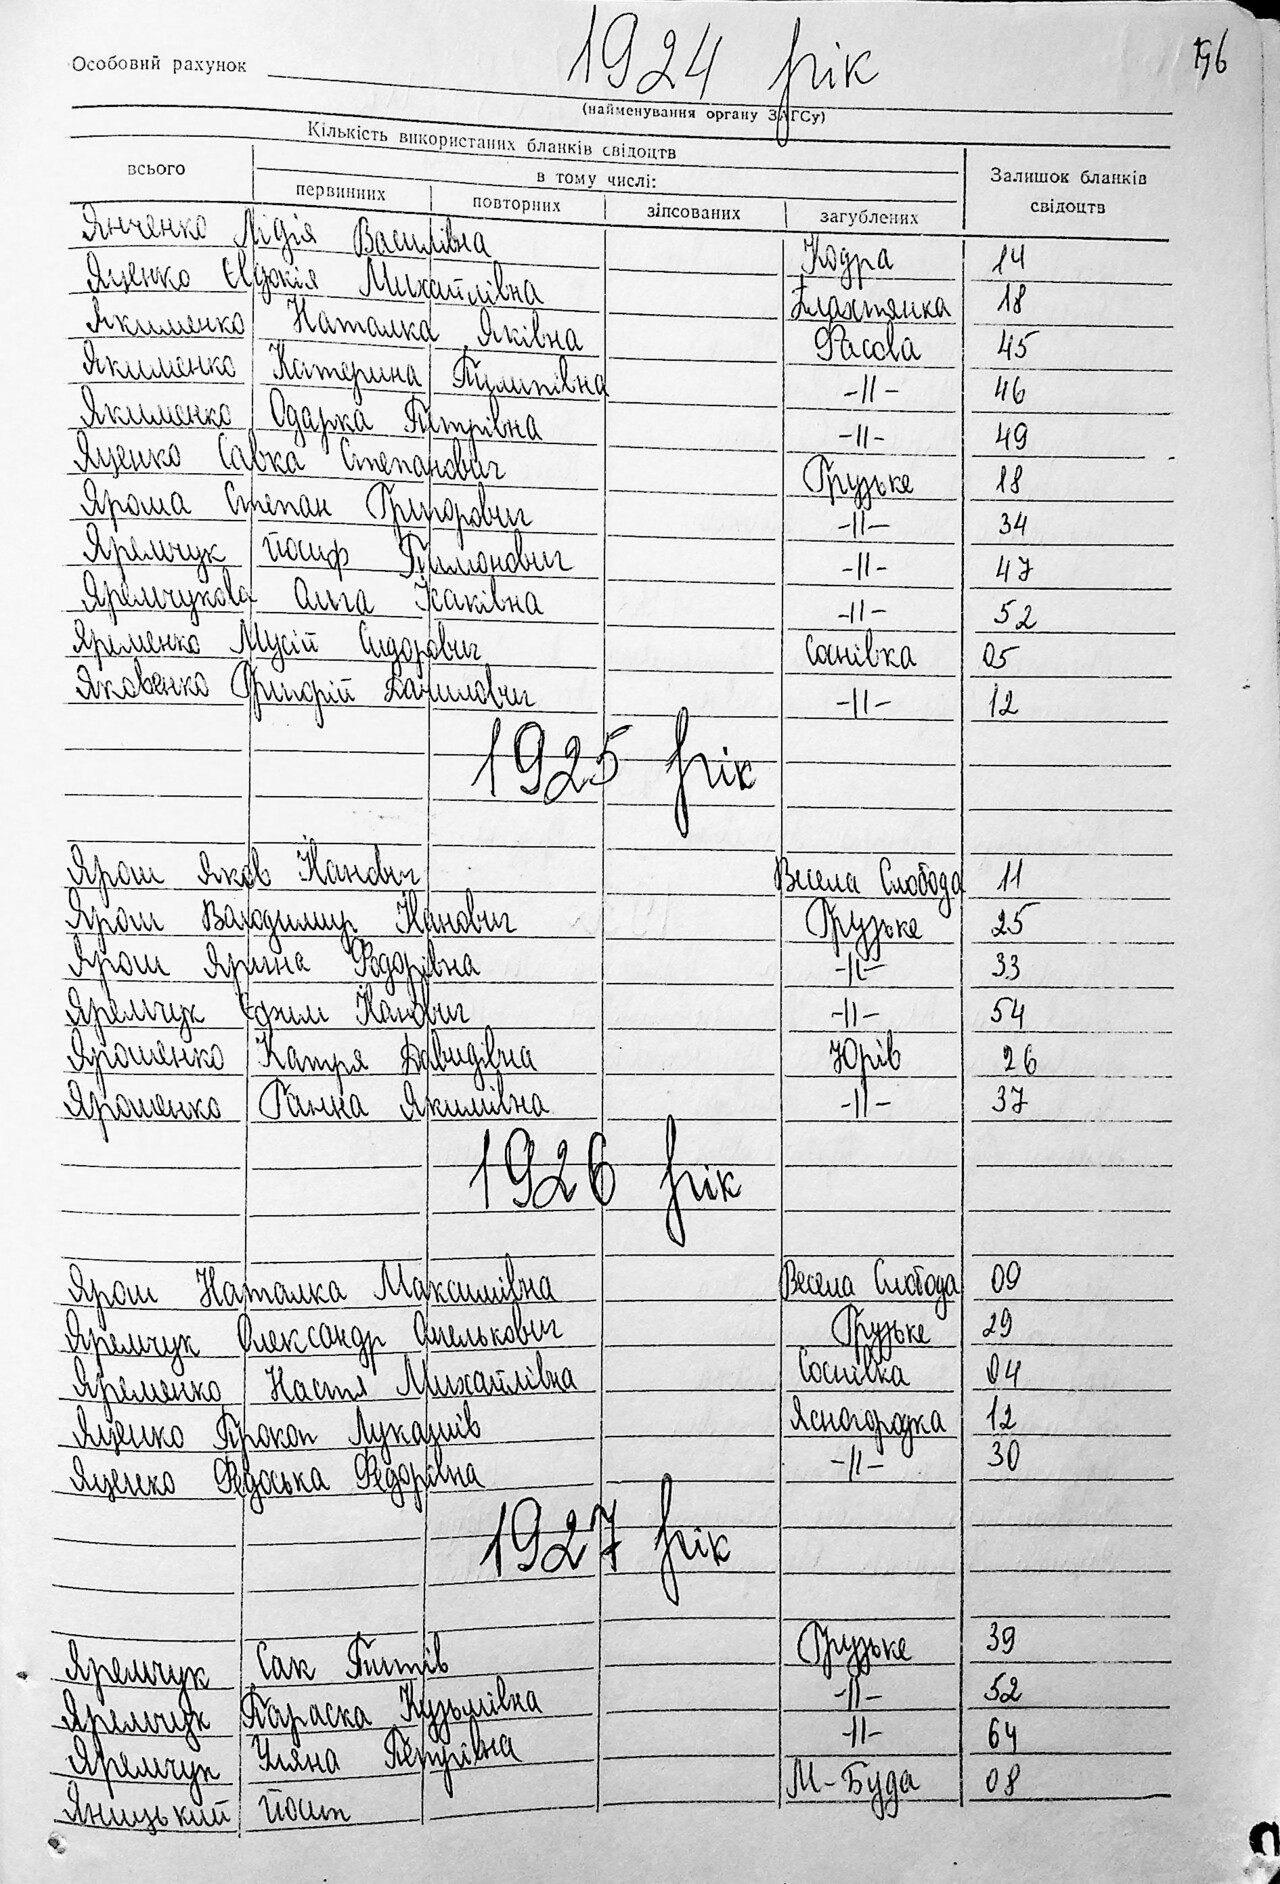 1924 рік
196
Особовий рахунок
(найменування органу ЗАГСу)
Кількість використаних бланків свідоцтв
всього
в тому числі:
первинних повторних зіпсованих загублених
Залишок бланків свідоцтв
Янченко Лідія Василівна Кодра 14
Яценко Євдокія Михайлівна 18
Якименко Наталка Яківна Фасова 45
Якименко Катерина Пилипівна -||- 46
Якименко Одарка Петрівна -||- 49
Яценко Савка Степанович Грузьке 18
Яроша Степан Григорович -||- 34
Яремчук Йосиф -||- 47
Яремчукова Ольга Ісаківна -||- 52
Яременко Мусій Сидорович Соснівка 05
Яковенко Григорій Данилович -||- 12
1925 рік
Ярош Яков Іванович Весела Слобода 11
Ярош Володимир Іванович Грузьке 25
Ярош Ярина Федорівна -||- 33
Яремчук Юхим Іванович -||- 54
Ярошенко Катря Давидівна Юрів 26
Ярошенко Ганна Якимівна -||- 37
1926 рік
Ярош Наталка Максимівна Весела Слобода 09
Яремчук Олександр Омелькович Грузьке 29
Яременко Настя Михайлівна Соснівка 04
Яценко Прокоп Лукашів Ясногородка 12
Яценко Федоська Федорівна -||- 30
1927 рік
Яремчук Сак Грузьке 39
Яремчук Параска Кузьмівна -||- 52
Яремчук Уляна Петрівна -||- 64
Яницький Йосип М-Буда 08